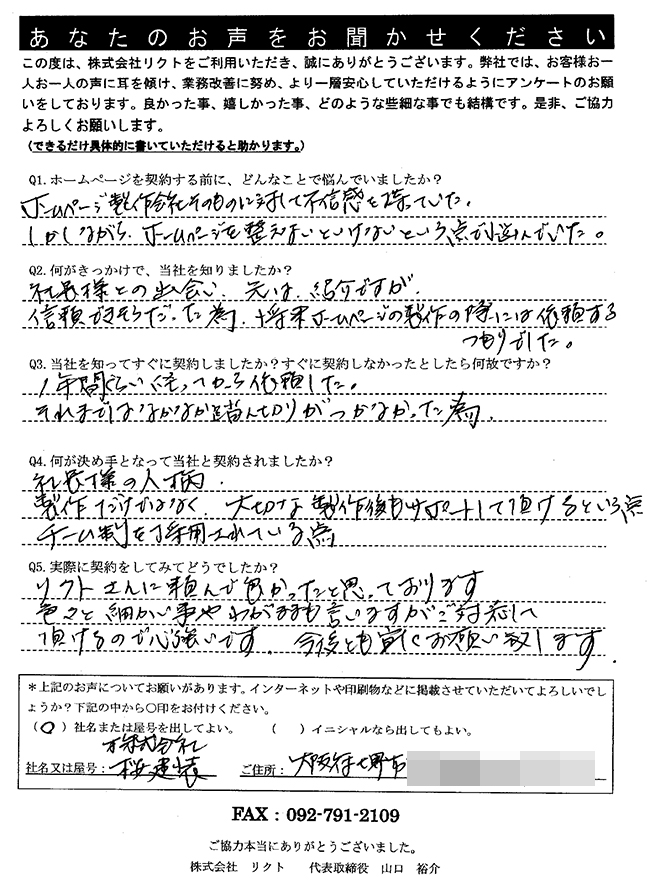 あなたのお声をお聞かせください
この度は、株式会社リクトをご利用いただき、誠にありがとうございます。弊社では、お客様お一
人お一人の声に耳を傾け、業務改善に努め、より一層安心していただけるようにアンケートのお願
いをしております。良かった事、嬉しかった事、どのような些細な事でも結構です。是非、ご協力
よろしくお願いします。
(できるだけ具体的に書いていただけると助かります。)
Q1.ホームページを契約する前に、どんなことで悩んでいましたか？
ホームページ製作会社そのものに対して不信感を持っていた。
しかしながら、ホームページを整えないといけないという点が悩んでいた。
Q2.何がきっかけで、当社を知りましたか？
社長様との出会い、元は、紹介ですが、
信頼できそうだった為、将来ホームページの製作の際には依頼する
つもりでした。
Q3.当社を知ってすぐに契約しましたか？すぐに契約しなかったとしたら何故ですか？
1年間ぐらい経ってから依頼した。
それまではなかなか踏ん切りがつかなかった為、
Q4.何が決め手となって当社と契約されましたか？
社長様の人柄、
製作だけがなく、大切な製作後もサポートして頂けるという点
チーム制を採用されている点
Q5.実際に契約をしてみてどうでしたか？
リクトさんに頼んで良かったと思っております
色々と細かい事やわがままも言いますがご対応して
頂けるので心強いです。今後とも宜しくお願い致します.
＊上記のお声についてお願いがあります。インターネットや印刷物などに掲載させていただいてよろしいでし
ょうか？下記の中から○印をお付けください。
(○)社名または屋号を出してよい。 ( )イニシャルなら出してもよい。
株式会社
社名又は屋号：桜建装 ご住所：大阪府堺市
FAX：092-791-2109
ご協力本当にありがとうございました。
株式会社 リクト 代表取締役 山口 裕介